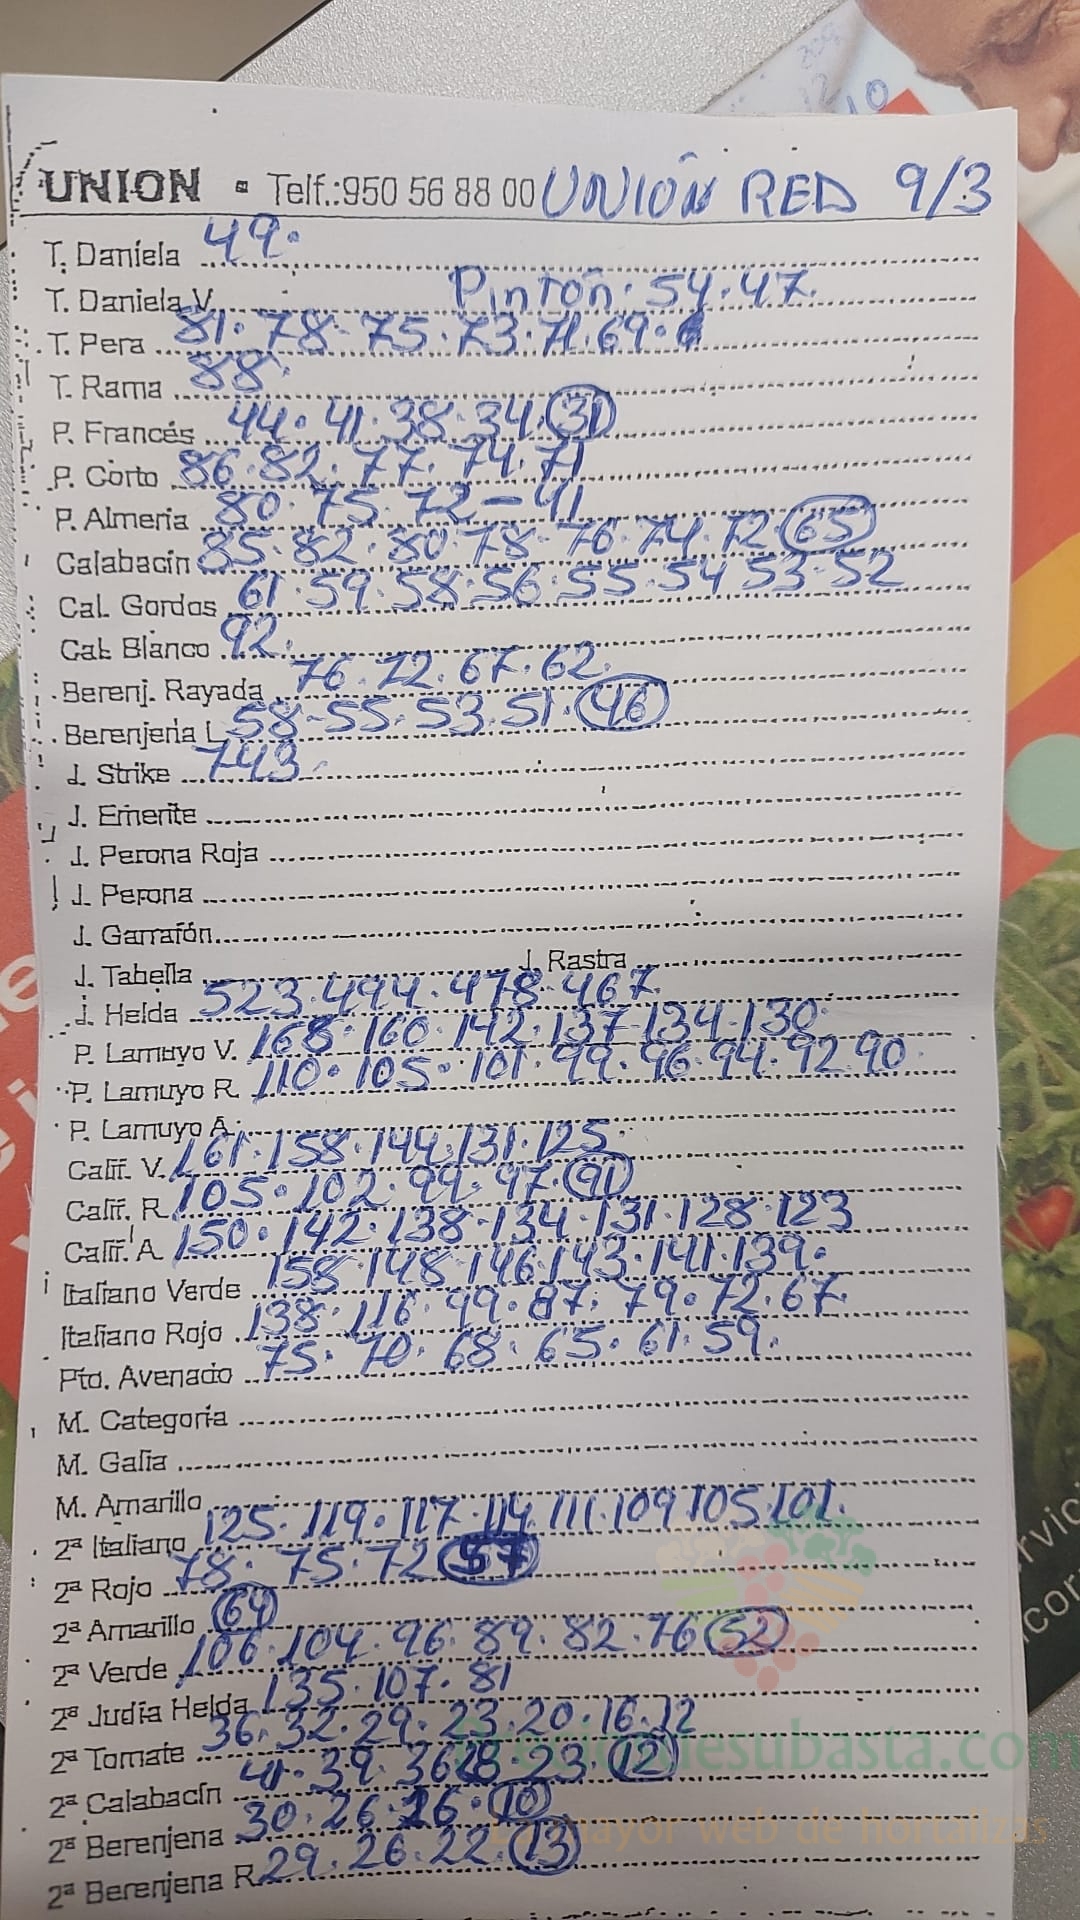 UNION - Telf.:950 56 88 00 UNIÓN RED 9/3
T. Daniela 49.
T. Daniela V. Pintón. 54.47.
T. Pera 81.78-75.73.71.69.
T. Rama 88.
P. Francés 44.41.38.34.31
P. Corto 86.82.77.74.71
P. Almeria 80.75.72-41
Calabacín 85.82.80.78-76.74.72.65
Cal. Gordos 61.59.58.56.55.54 53.52
Cal. Blanco 92.
Berenj. Rayada 76.72.67.62.
Berenjena L 58-55.53.51.46
J. Strike 743.
J. Emerite
J. Perona Roja
J. Perona
J. Garrafón
J. Tabella J. Rastra
J. Helda 523.494.478-467
P. Lamuyo V. 168.160.142.137-134.130.
P. Lamuyo R. 110.105.101.99.96.94.92.90
P. Lamuyo A.
Calif. V. 161.158.144.131.125.
Calif. R. 105.102.99.97.91
Calif. A. 150.142.138-134.131.128.123
Italiano Verde 158.148.146.143.141.139.
Italiano Rojo 138.116.99.87.79.72.67.
Pto. Avenado 75.70.68.65.61.59.
M. Categoría
M. Galia
M. Amarillo
2ª Italiano 125.119.117.114.111.109.105.101.
2ª Rojo 78.75.72 57
2ª Amarillo 64
2ª Verde 106.104.96.89.82.76 52
2ª Judía Helda 135.107.81
2ª Tomate 36.32.29.23.20.16.12
2ª Calabacín 41.39.36 28 23.12
2ª Berenjena 30.26.16.10
2ª Berenjena R. 29.26.22.13
La mayor web de hortalizas